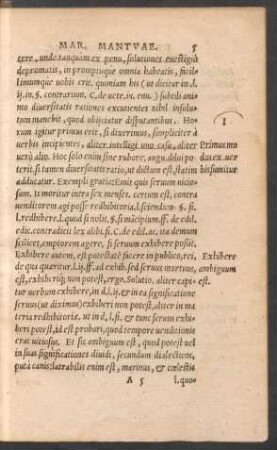 MAR. MANTVAE. 5
cere, unde tanquàm ex penu, solutiones euestigiò
depromatis, in promptuque omnia habeatis, facil-
limumque uobis erit. quoniam his (ut dicitur in d.
l.ij. in §. contrarium. C. de uete. iu. enu.) subtili ani-
mo diuersitatis rationes excutientes nihil insolu-
tum manebit, quod obijciatur disputantibus. Ho-
rum igitur primus erit, si dixerimus, simpliciter à
uerbis incipientes, aliter intelligi uno casu, aliter
uerò alio. Hoc solo enim sine rubore, argu. dilui po
terit. si tamen diuersitatis ratio, ut dictum est, statim
adducatur. Exempli gratia: Emit quis seruum uitio-
sum, is moritur intra sex menses. certum est, contra
uenditorem agi posse redhibitoria. l. sciendum. §. fi.
l. redhibere. l. quod si nolit. §. si mācipium. ff. de ædil.
edic. contradicit lex aliàs. fi. C. de ædil. ac. ita demum
scilicet, emptorem agere, si seruum exhibere possit.
Exhibere autem, est potestatē facere in publico, rei,
de qua quæritur. l.ij. ff. ad exhib. sed seruus mortuus,
est, exhiberiq; non potest, ergo. Solutio. aliter capi-
tur uerbum exhibere, in d. l.ij. & in ea significatione
seruus (ut diximus) exhiberi non potest, aliter in ma
teria redhibitoriæ. ut in d. l. fi. & tunc seruum exhi-
beri potest, id est probari, quod tempore uenditionis
erat uitiosus. Et sic ambiguum est, quod potest uel
in suas significationes diuidi, secundum dialecticos,
putà canis: latrabilis enim est, marinus, & cœlestis
A 5 l.quo-
I
Primus mo
dus ex uer
bis sumitur
Exhibere
ambiguum
est.